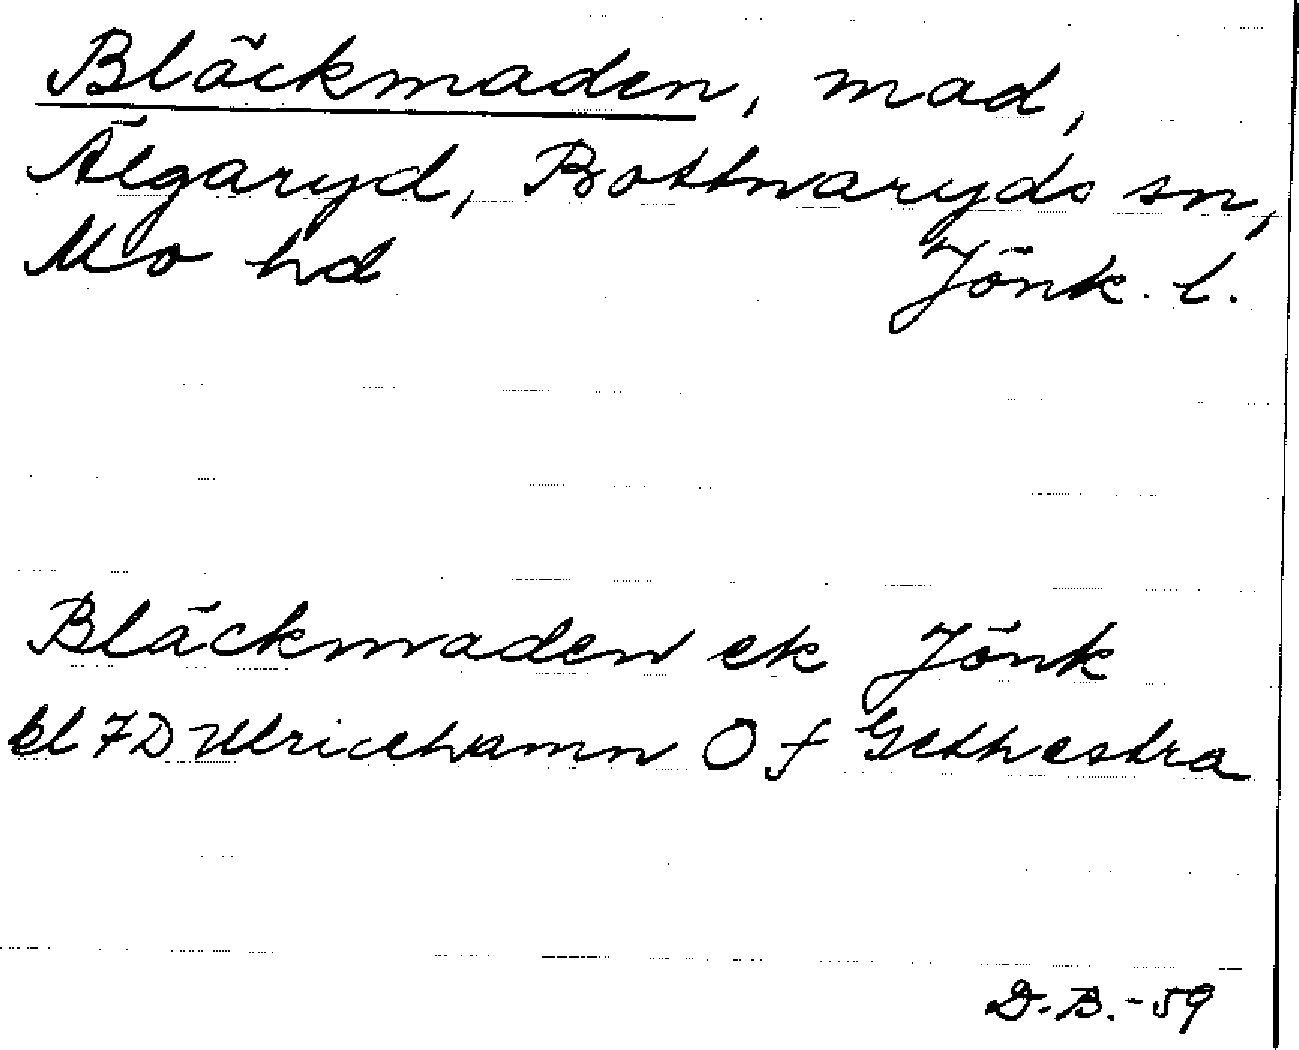 Bläckmaden, mad,
Älgaryd, Bottnaryds sn,
Mo hd Jönk. l.
Bläckmaden ek Jönk
bl 7D Ulricehamn Of Gethestra
D.B.-59